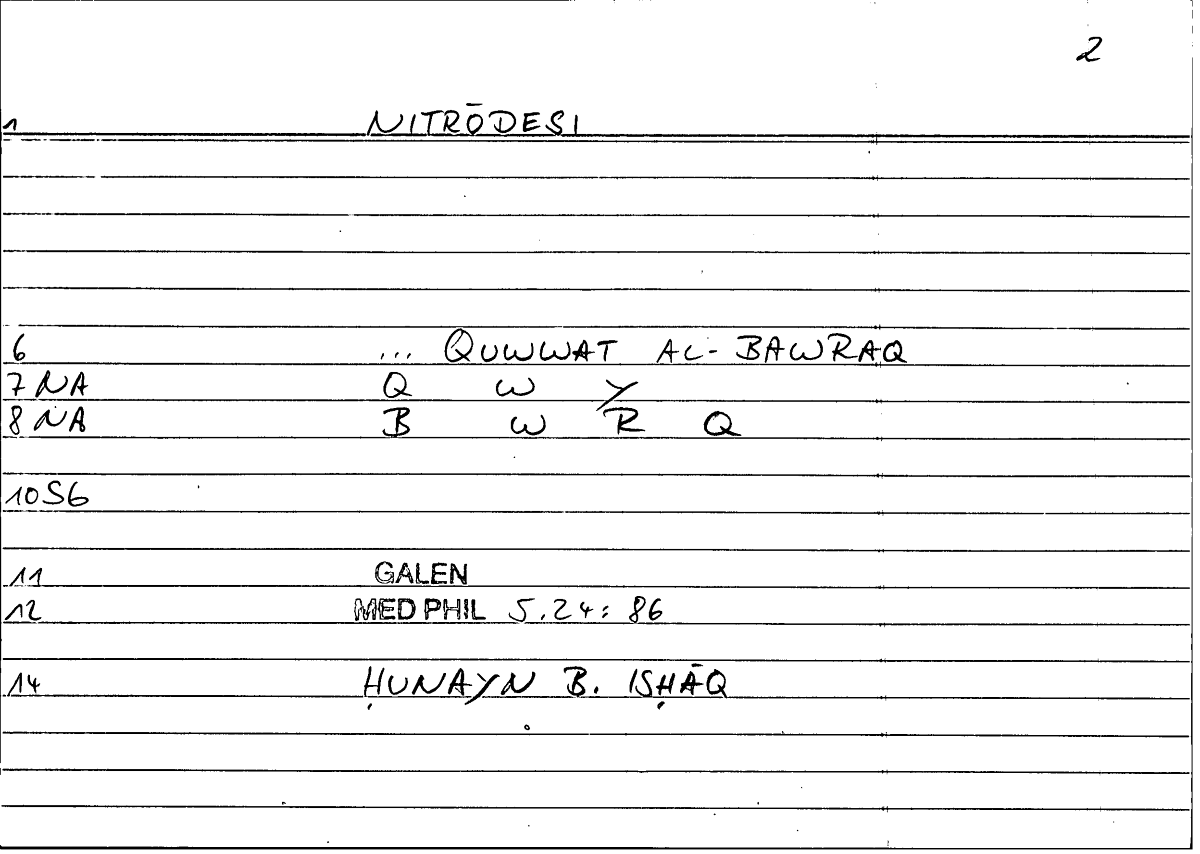 2
1 NITRŌDESI
6 ... QUWWAT AL-BAWRAQ
7 NA Q W Y
8 NA B W R Q
10 S6
11 GALEN
12 MED PHIL 5.24: 86
14 ḤUNAYN B. ISḤĀQ